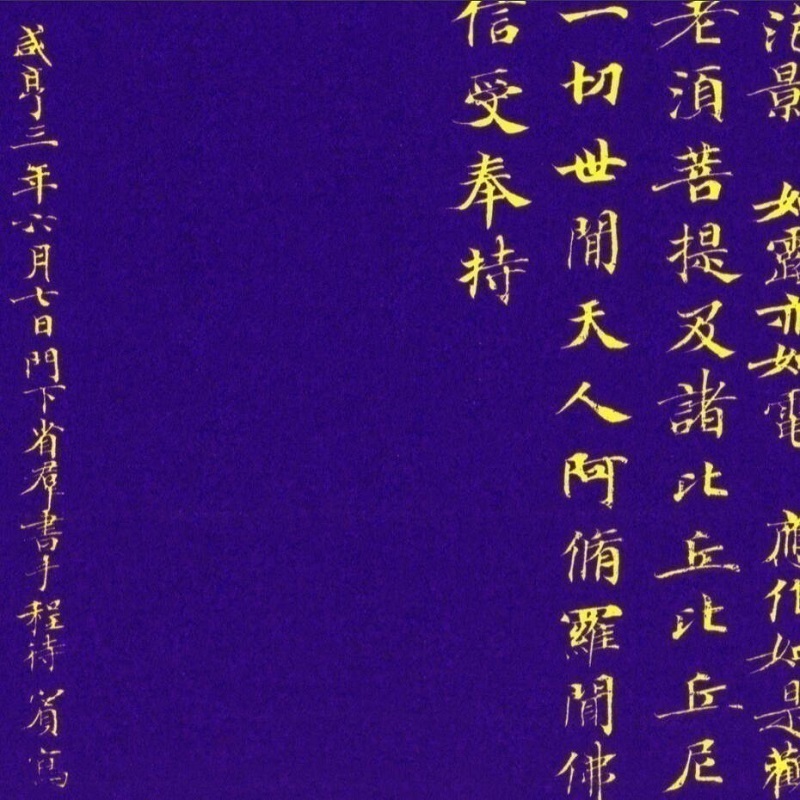 泡影如露亦如電應作如是觀
老須菩提及諸比丘比丘尼
一切世閒天人阿脩羅聞佛
信受奉持
咸亨三年六月七日門下省羣書手程待賓寫